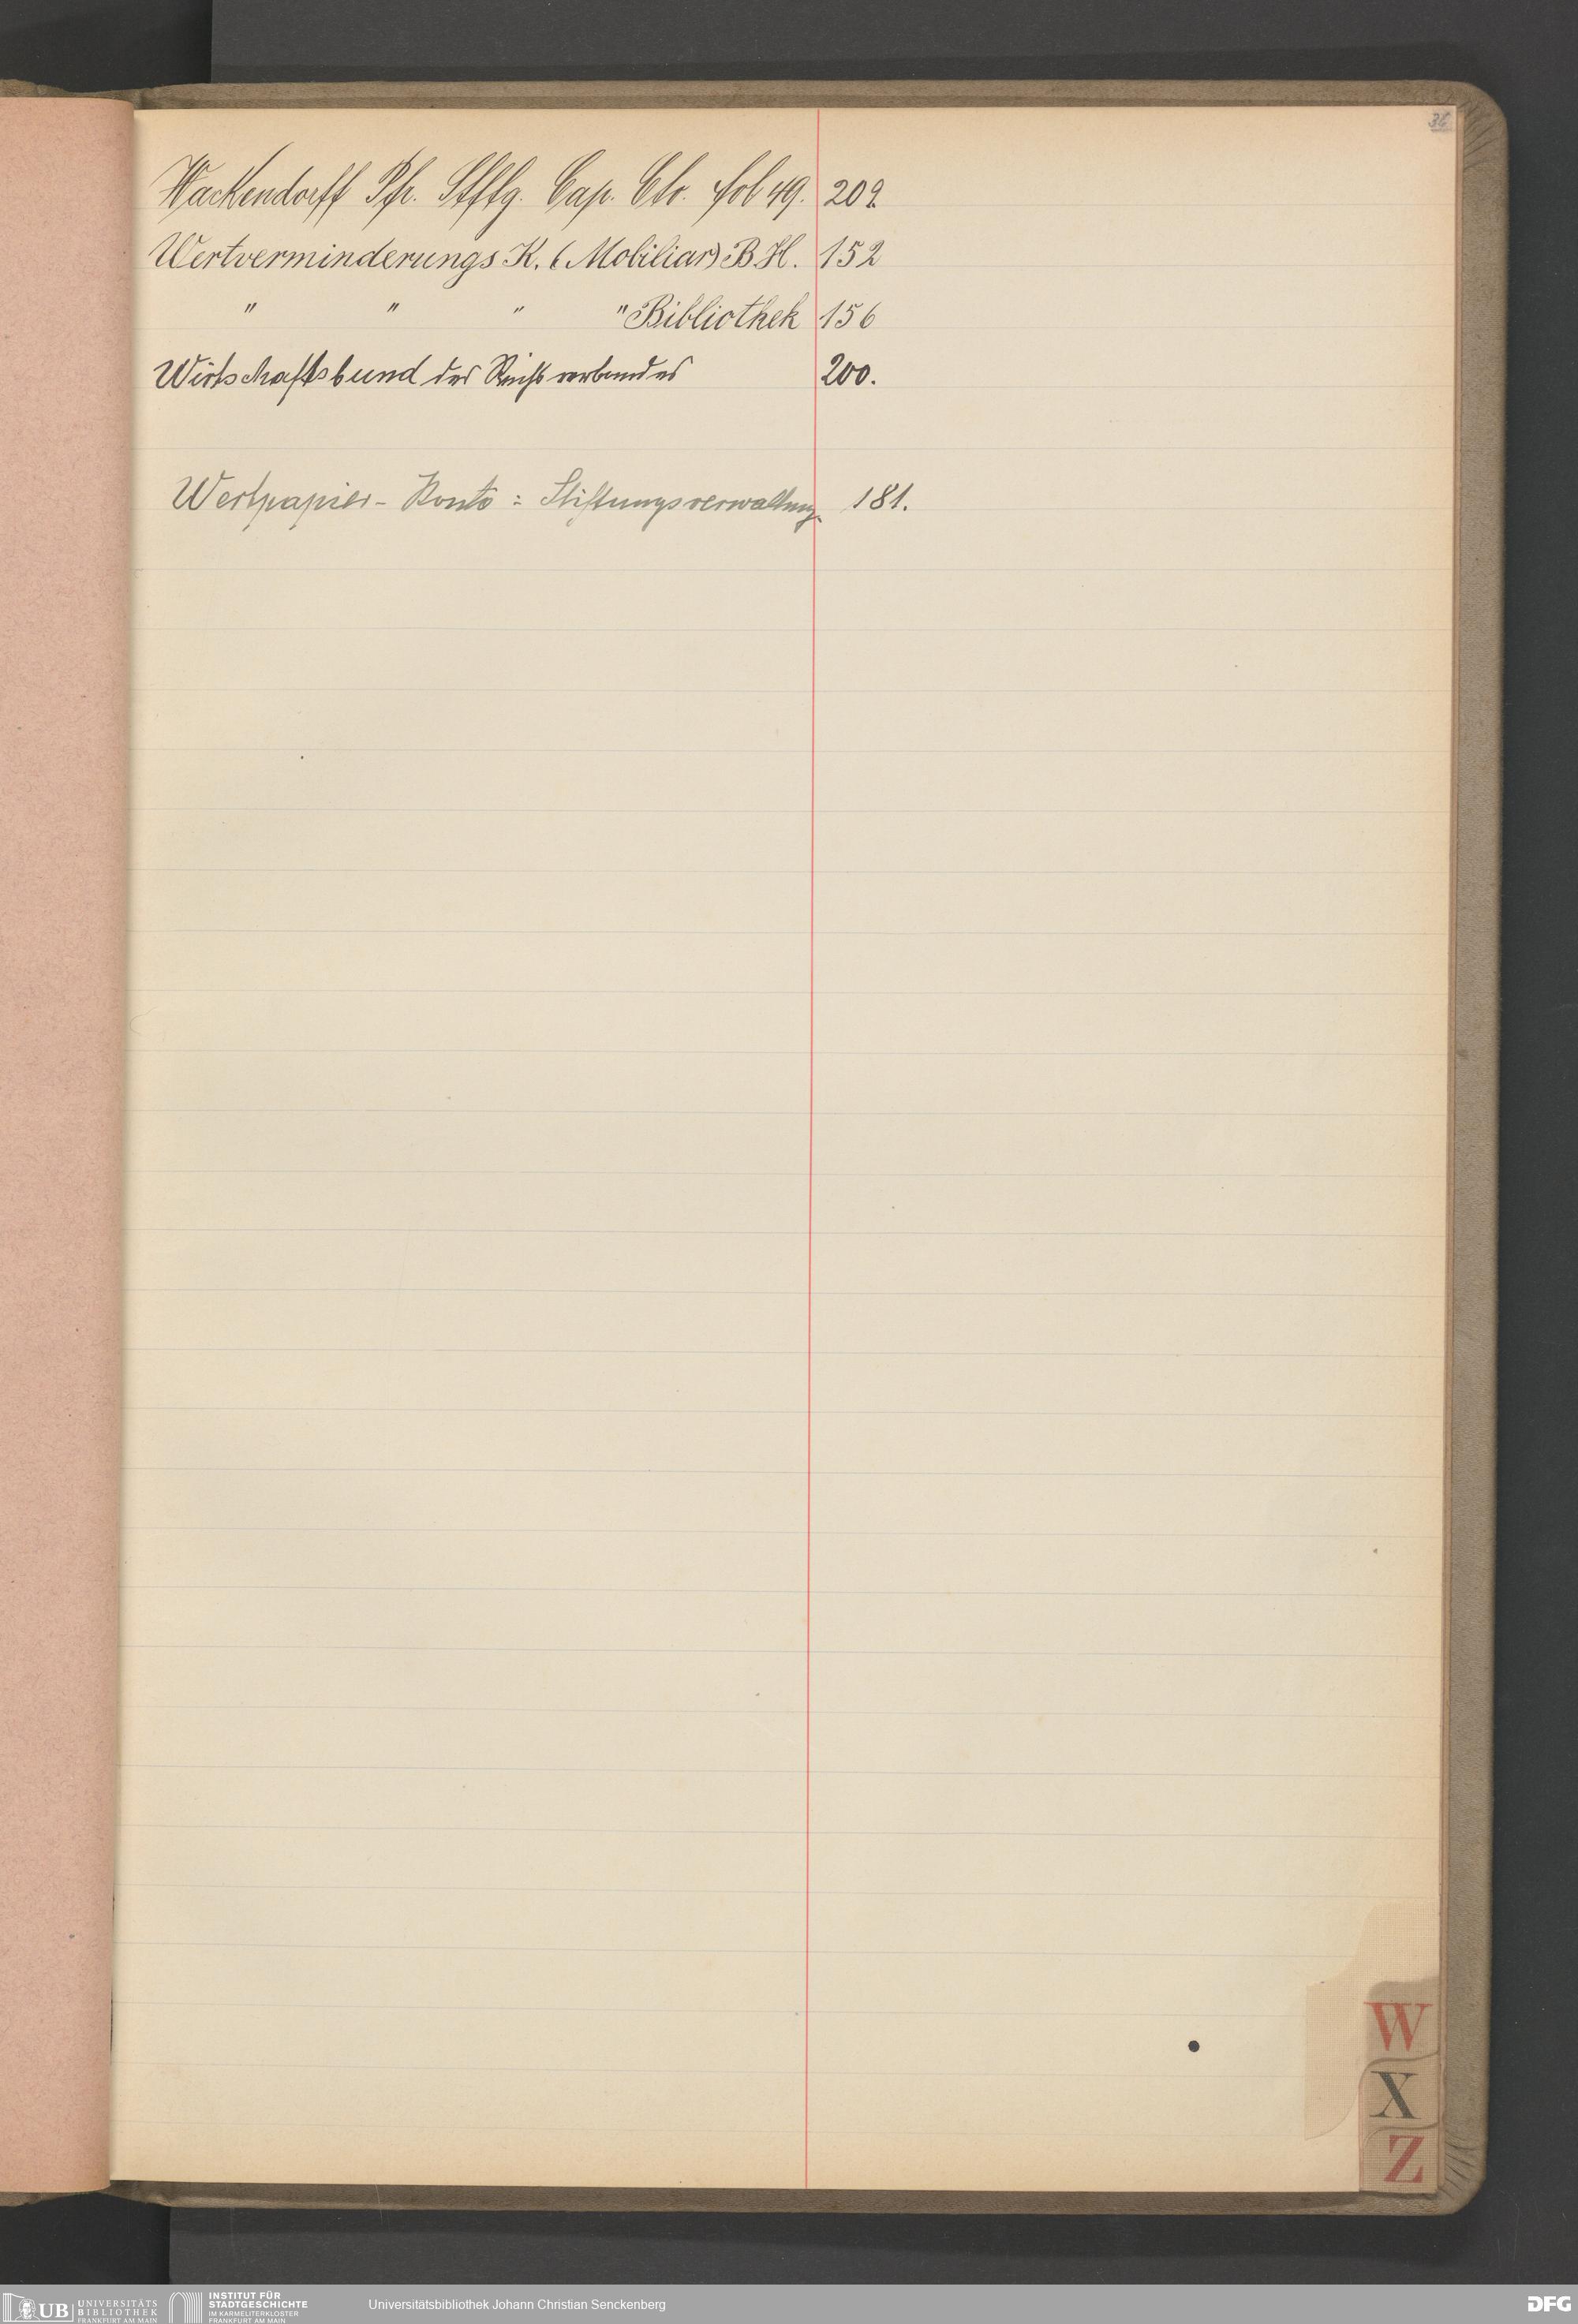 36
Wackendorff Pfr. Stftg. Cap. Cto. Fol 49. 202
Wertverminderungs K. (Mobiliar) B.H. 152
" " " " Bibliothek 156
Wirtschaftsbund des Reichsverbandes 200.
Wertpapier-Konto: Stiftungsverwaltung 181.
W
X
Z
UB UNIVERSITÄTS BIBLIOTHEK FRANKFURT AM MAIN
INSTITUT FÜR STADTGESCHICHTE IM KARMELITERKLOSTER FRANKFURT AM MAIN
Universitätsbibliothek Johann Christian Senckenberg
DFG